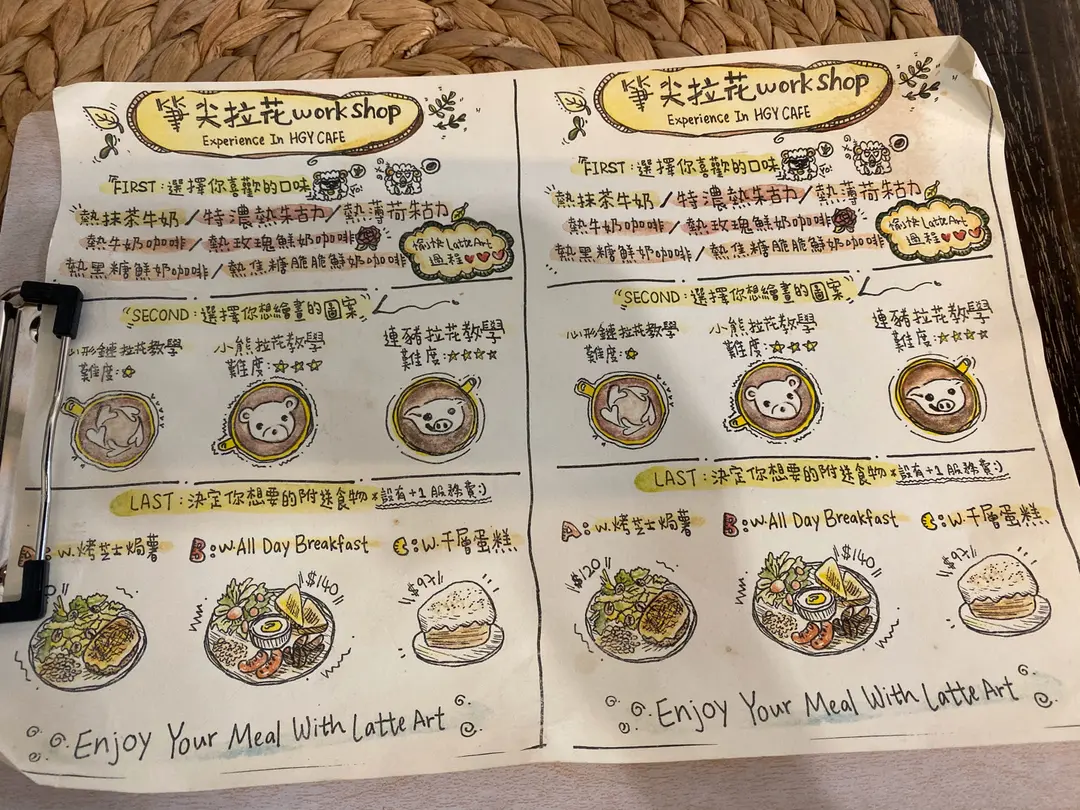 筆尖拉花workshop
Experience In HGY CAFE
FIRST:選擇你喜歡的口味
熱抹茶牛奶/特濃熱朱古力/熱薄荷朱古力
熱牛奶咖啡/熱玫瑰鮮奶咖啡
熱黑糖鮮奶咖啡/熱焦糖脆脆鮮奶咖啡
愉快 Latte Art
過程
SECOND:選擇你想繪畫的圖案
心形鏈拉花教學
難度:☆
小熊拉花教學
難度:☆☆☆
連豬拉花教學
難度:☆☆☆☆
LAST:決定你想要的附送食物*設有+1服務費:)
: w.烤芝士焗薯
B:w.All Day Breakfast
C:w.千層蛋糕
$140
$97
Enjoy Your Meal With Latte Art
筆尖拉花workshop
Experience In HGY CAFE
FIRST:選擇你喜歡的口味
熱抹茶牛奶/特濃熱朱古力/熱薄荷朱古力
熱牛奶咖啡/熱玫瑰鮮奶咖啡
熱黑糖鮮奶咖啡/熱焦糖脆脆鮮奶咖啡
愉快 Latte Art
過程
SECOND:選擇你想繪畫的圖案
心形鏈拉花教學
難度:☆
小熊拉花教學
難度:☆☆☆
連豬拉花教學
難度:☆☆☆☆
LAST:決定你想要的附送食物*設有+1服務費:)
A:w.烤芝士焗薯
B:w.All Day Breakfast
C:w.千層蛋糕
$120
$140
$97
Enjoy Your Meal With Latte Art